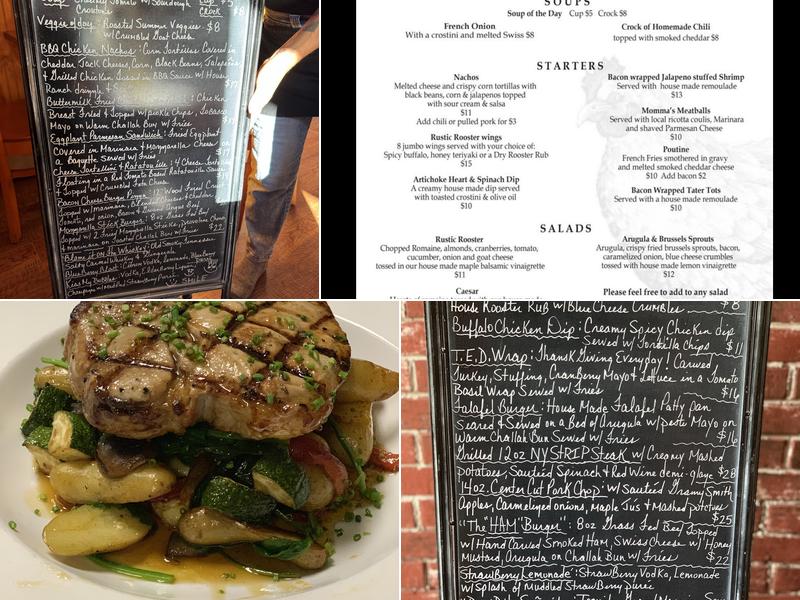 w/ Sourdough Cup $5
Crock $8
Veggie of day: Roasted Summer Veggies $8
w/ Crumbled Goat Cheese
BBQ Chicken Nachos: Corn Tortillas Covered in
Cheddar Jack Cheeses, Corn, Black Beans, Jalapeños
& Grilled Chicken tossed in BBQ Sauce w/ House
Ranch drizzle
Buttermilk Fried Chicken
Breast Fried & topped w/ pickle Chips, Tobasco
Mayo on Warm Challah Bun w/ Fries
Eggplant Parmesan Sandwich: Fried Eggplant
Covered in Marinara & Mozzarella Cheese on
a Baguette Served w/ Fries
Cheese Tortellini & Ratatouille: 4 Cheese Tortellini
Floating in a Red Tomato Based Ratatouille Sauce
& Topped w/ Crumbled Feta Cheese
Bacon Cheese Burger Pizza: 12" Wood Fired Crust
Topped w/ marinara, Blended Cheeses & Cheddar,
Tomato, red onion, Bacon & Ground Angus Beef
Mozzarella Stick Burger: 8oz Grass Fed Beef
Topped w/ 2 Fried Mozzarella Sticks, Provolone Cheese
& marinara on Toasted Challah Bun w/ Fries $22
Blame it on the Whiskey: Old Smokey Tennessee
Salty Caramel Whiskey & Gingerale
Blueberry Blast: Citron Vodka, Lemonade, Blueberry
Kiss My Bubbles: Vodka, Elderberry Liqueur,
Champagne w/ Muddled Strawberry Puree
SMILE
SOUPS
Soup of the Day Cup $5 Crock $8
French Onion
With a crostini and melted Swiss $8
Crock of Homemade Chili
topped with smoked cheddar $8
STARTERS
Nachos
Melted cheese and crispy corn tortillas with
black beans, corn & jalapenos topped
with sour cream & salsa
$11
Add chili or pulled pork for $3
Rustic Rooster wings
8 jumbo wings served with your choice of:
Spicy buffalo, honey teriyaki or a Dry Rooster Rub
$15
Artichoke Heart & Spinach Dip
A creamy house made dip served
with toasted crostini & olive oil
$10
Bacon wrapped Jalapeno stuffed Shrimp
Served with house made remoulade
$13
Momma's Meatballs
Served with local ricotta coulis, Marinara
and shaved Parmesan Cheese
$10
Poutine
French Fries smothered in gravy
and melted smoked cheddar cheese
$10 Add bacon $2
Bacon Wrapped Tater Tots
Served with a house made remoulade
$10
SALADS
Rustic Rooster
Chopped Romaine, almonds, cranberries, tomato,
cucumber, onion and goat cheese
tossed in our house made maple balsamic vinaigrette
$11
Caesar
Arugula & Brussels Sprouts
Arugula, crispy fried brussels sprouts, bacon,
caramelized onion, blue cheese crumbles
tossed with house made lemon vinaigrette
$12
Please feel free to add to any salad
House Rooster Rub w/ Blue Cheese Crumbles $8
Buffalo Chicken Dip: Creamy Spicy Chicken dip
Served w/ Tortilla Chips $11
T.E.D. Wrap: Thanks Giving Everyday! Carved
Turkey, Stuffing, Cranberry Mayo & Lettuce in a Tomato
Basil Wrap Served w/ Fries $16
Falafel Burger: House Made Falafel Patty pan
seared & Served on a Bed of Arugula w/ pesto Mayo on
Warm Challah Bun Served w/ Fries $16
Grilled 12oz NY STRIP Steak w/ Creamy Mashed
potatoes, Sautéed Spinach & Red Wine demi-glaze $28
14oz. Center Cut Pork Chop: w/ Sautéed Granny Smith
Apples, Carmelized onions, Maple Jus & Mashed potatoes $25
"The "HAM" Burger": 8oz Grass Fed Beef Topped
w/ Hand Carved Smoked Ham, Swiss Cheese w/ Honey
Mustard, Arugula on Challah Bun w/ Fries $22
Strawberry Lemonade: Strawberry Vodka, Lemonade
w/ Splash of Muddled Strawberry Puree